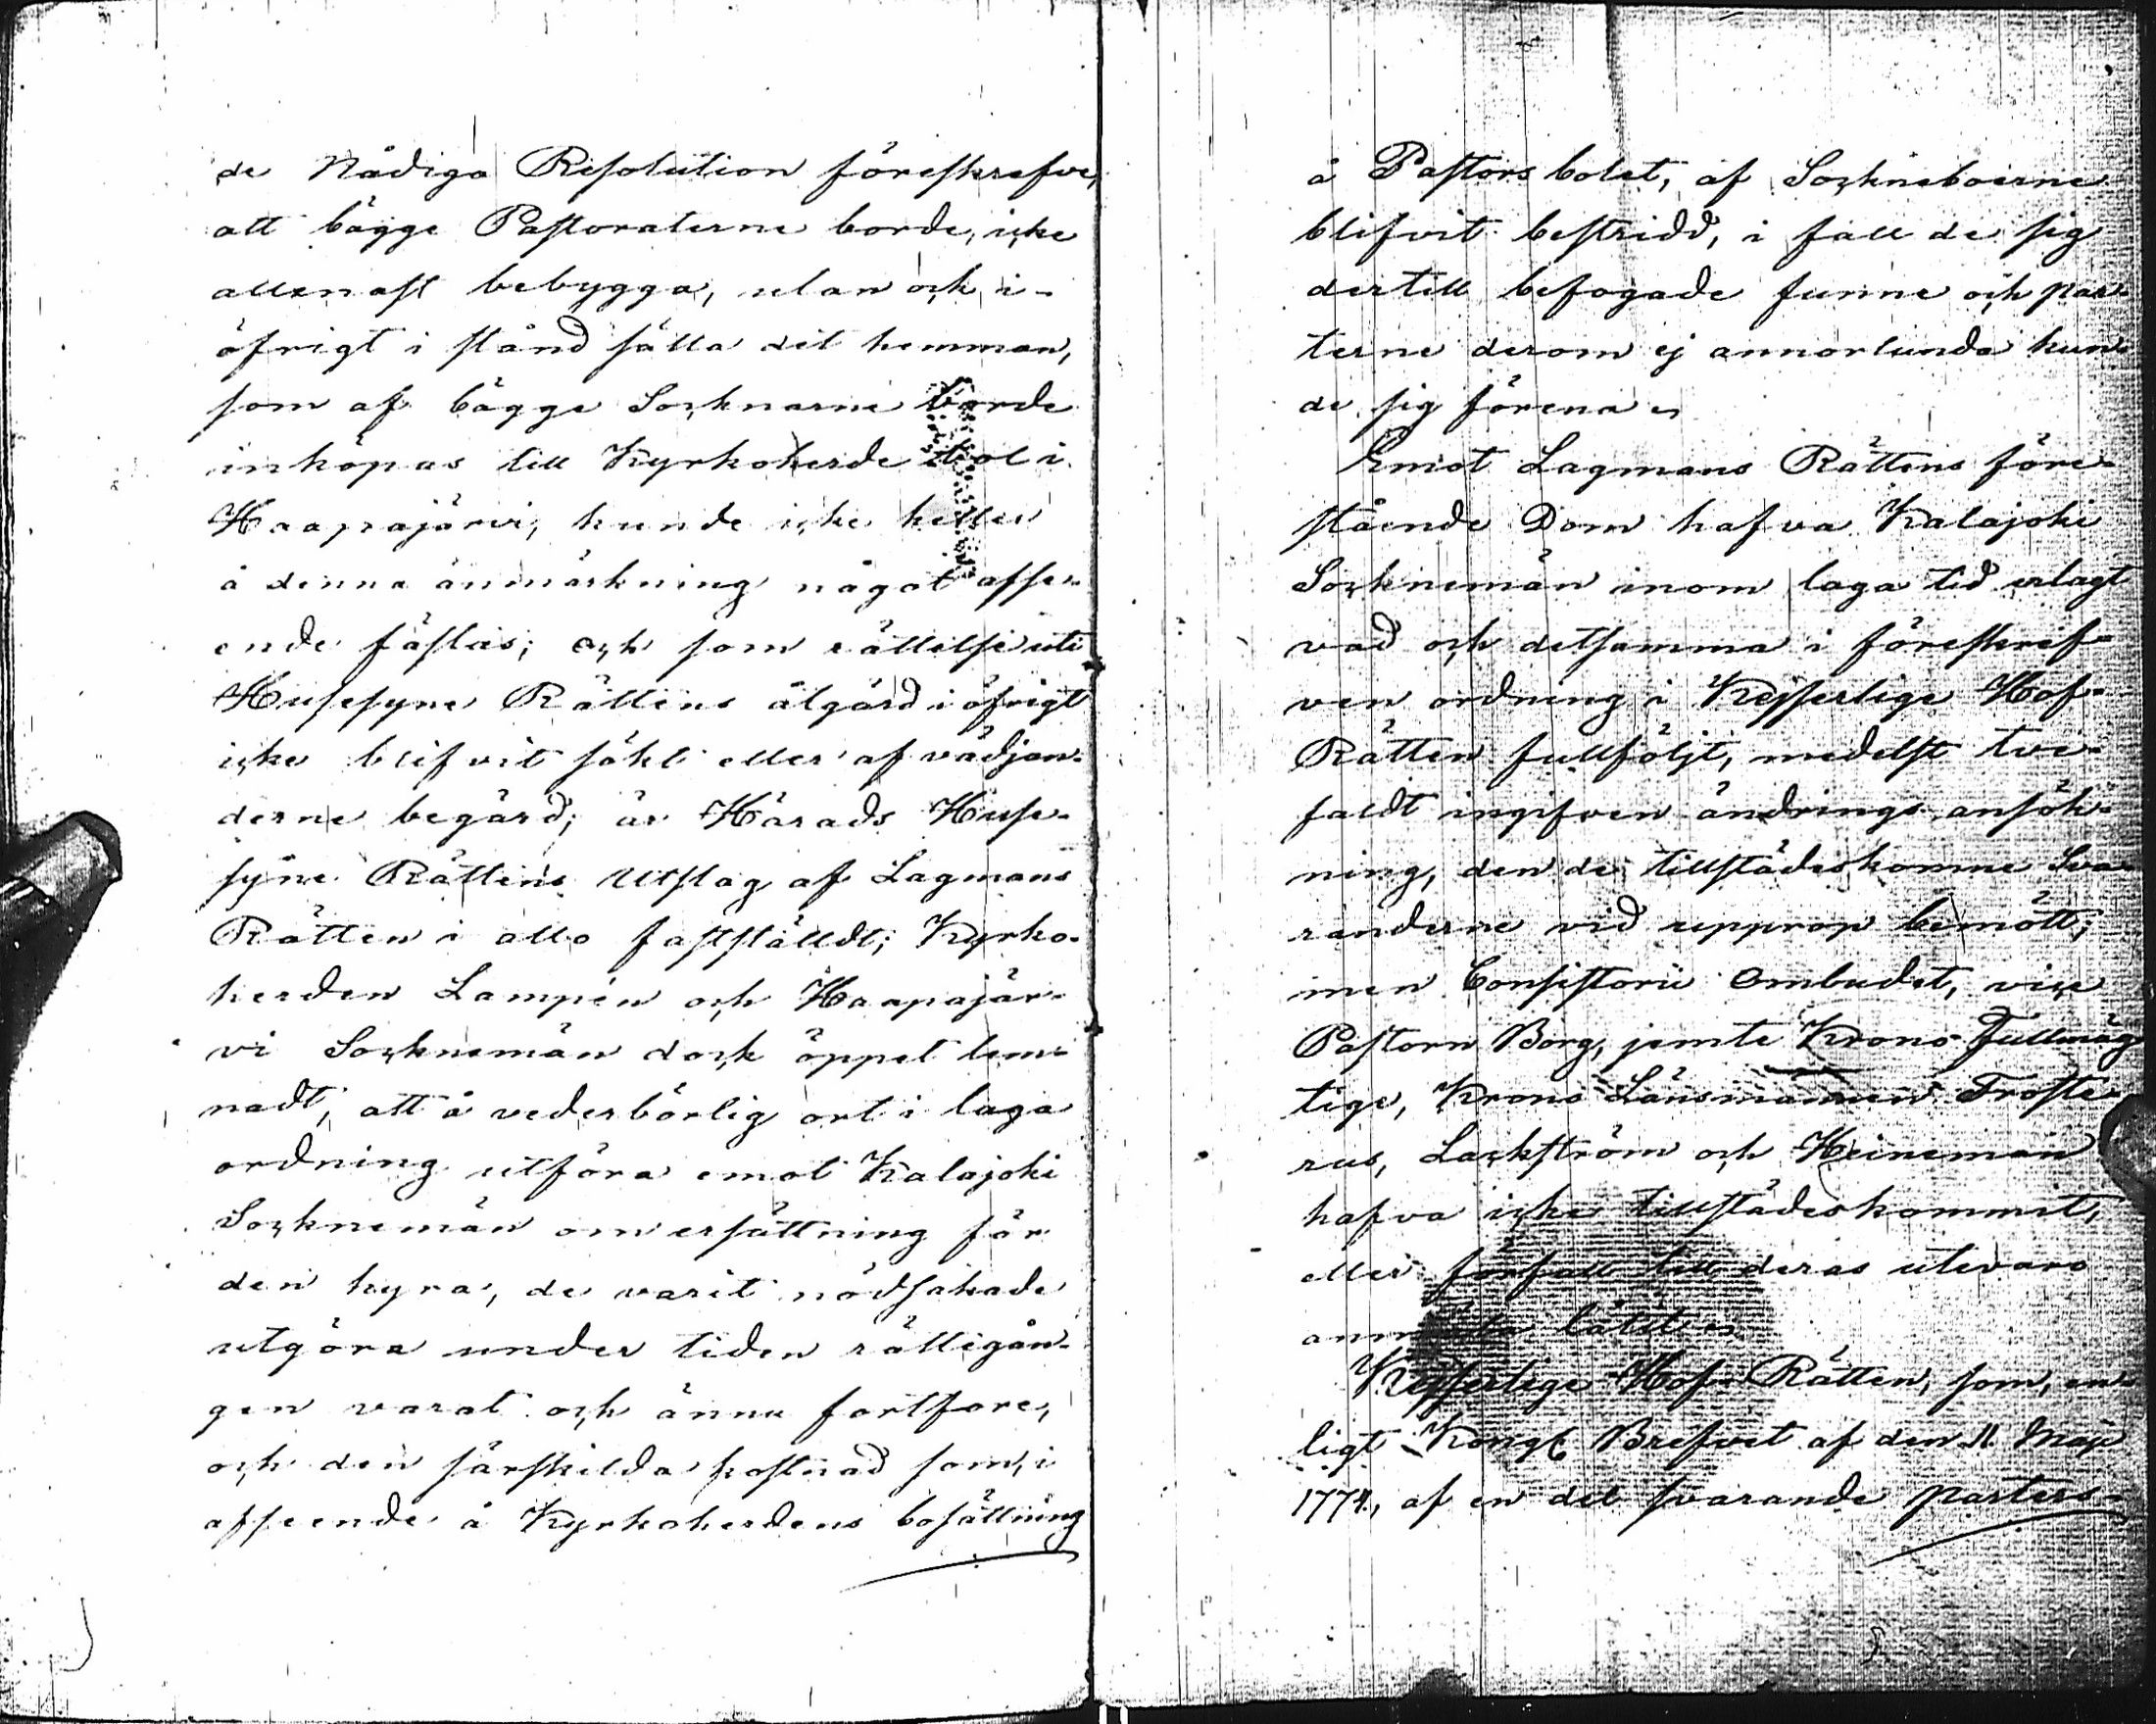 de Nådiga Resolution föreskrefve,
att bägge Pastoraterne borde, icke
allenast bebygga, utan ock i-
öfrigt i stånd sätta det hemman,
som af bägge Socknarne borde
inköpas till Kyrkoherde bol i
Haapajärvi, kunde icke heller
å denna anmärkning något afse-
ende fästas; och som rättelse uti
Husesyns Rättens åtgärd i öfrigt
icke blifvit sökt eller af vädjan-
derne begärd; är Härads Huse-
syns Rättens Utslag af Lagmans
Rätten i allo fastställdt; Kyrko-
herden Lampén och Haapajär-
vi Socknemän dock öppet lem-
nadt, att å vederbörlig ort i laga
ordning utföra emot Kalajoki
Socknemän om ersättning för
den hyra, de varit nödsakade
utgöra under tiden rättegån-
gen varat och ännu fortfore,
och den särskilda kostnad som, i
afseende å Kyrkoherdens bosättning
å Pastors bolet, af Socknéboerne
blifvit bestridd, i fall de sig
dertill befogade funne och par-
terne derom ej annorlunda kun-
de sig förena
Emot Lagmans Rättens före-
stående Dom hafva Kalajoki
Socknemän inom laga tid erlagt
vad och detsamma i föreskref-
ven ordning i Kejserlige Hof-
Rätten fullföljt, medelst tve-
faldt ingifven ändrings ansök-
ning, den de tillstädeskomne Sva-
randerne vid upprop bemött;
men Consistorii Ombudet, vice
Pastorn Borg, jemte Krono Fullmäg-
tige, Krono Länsmännen Froste-
rus, Lackström och Heineman
hafva icke tillstädeskommit,
eller förfall till deras utevaro
anmäla låtit
Kejserlige Hof Rätten, som, en-
ligt Kongl Brefvet af den 11 Maji
1774, af en del svarande parters